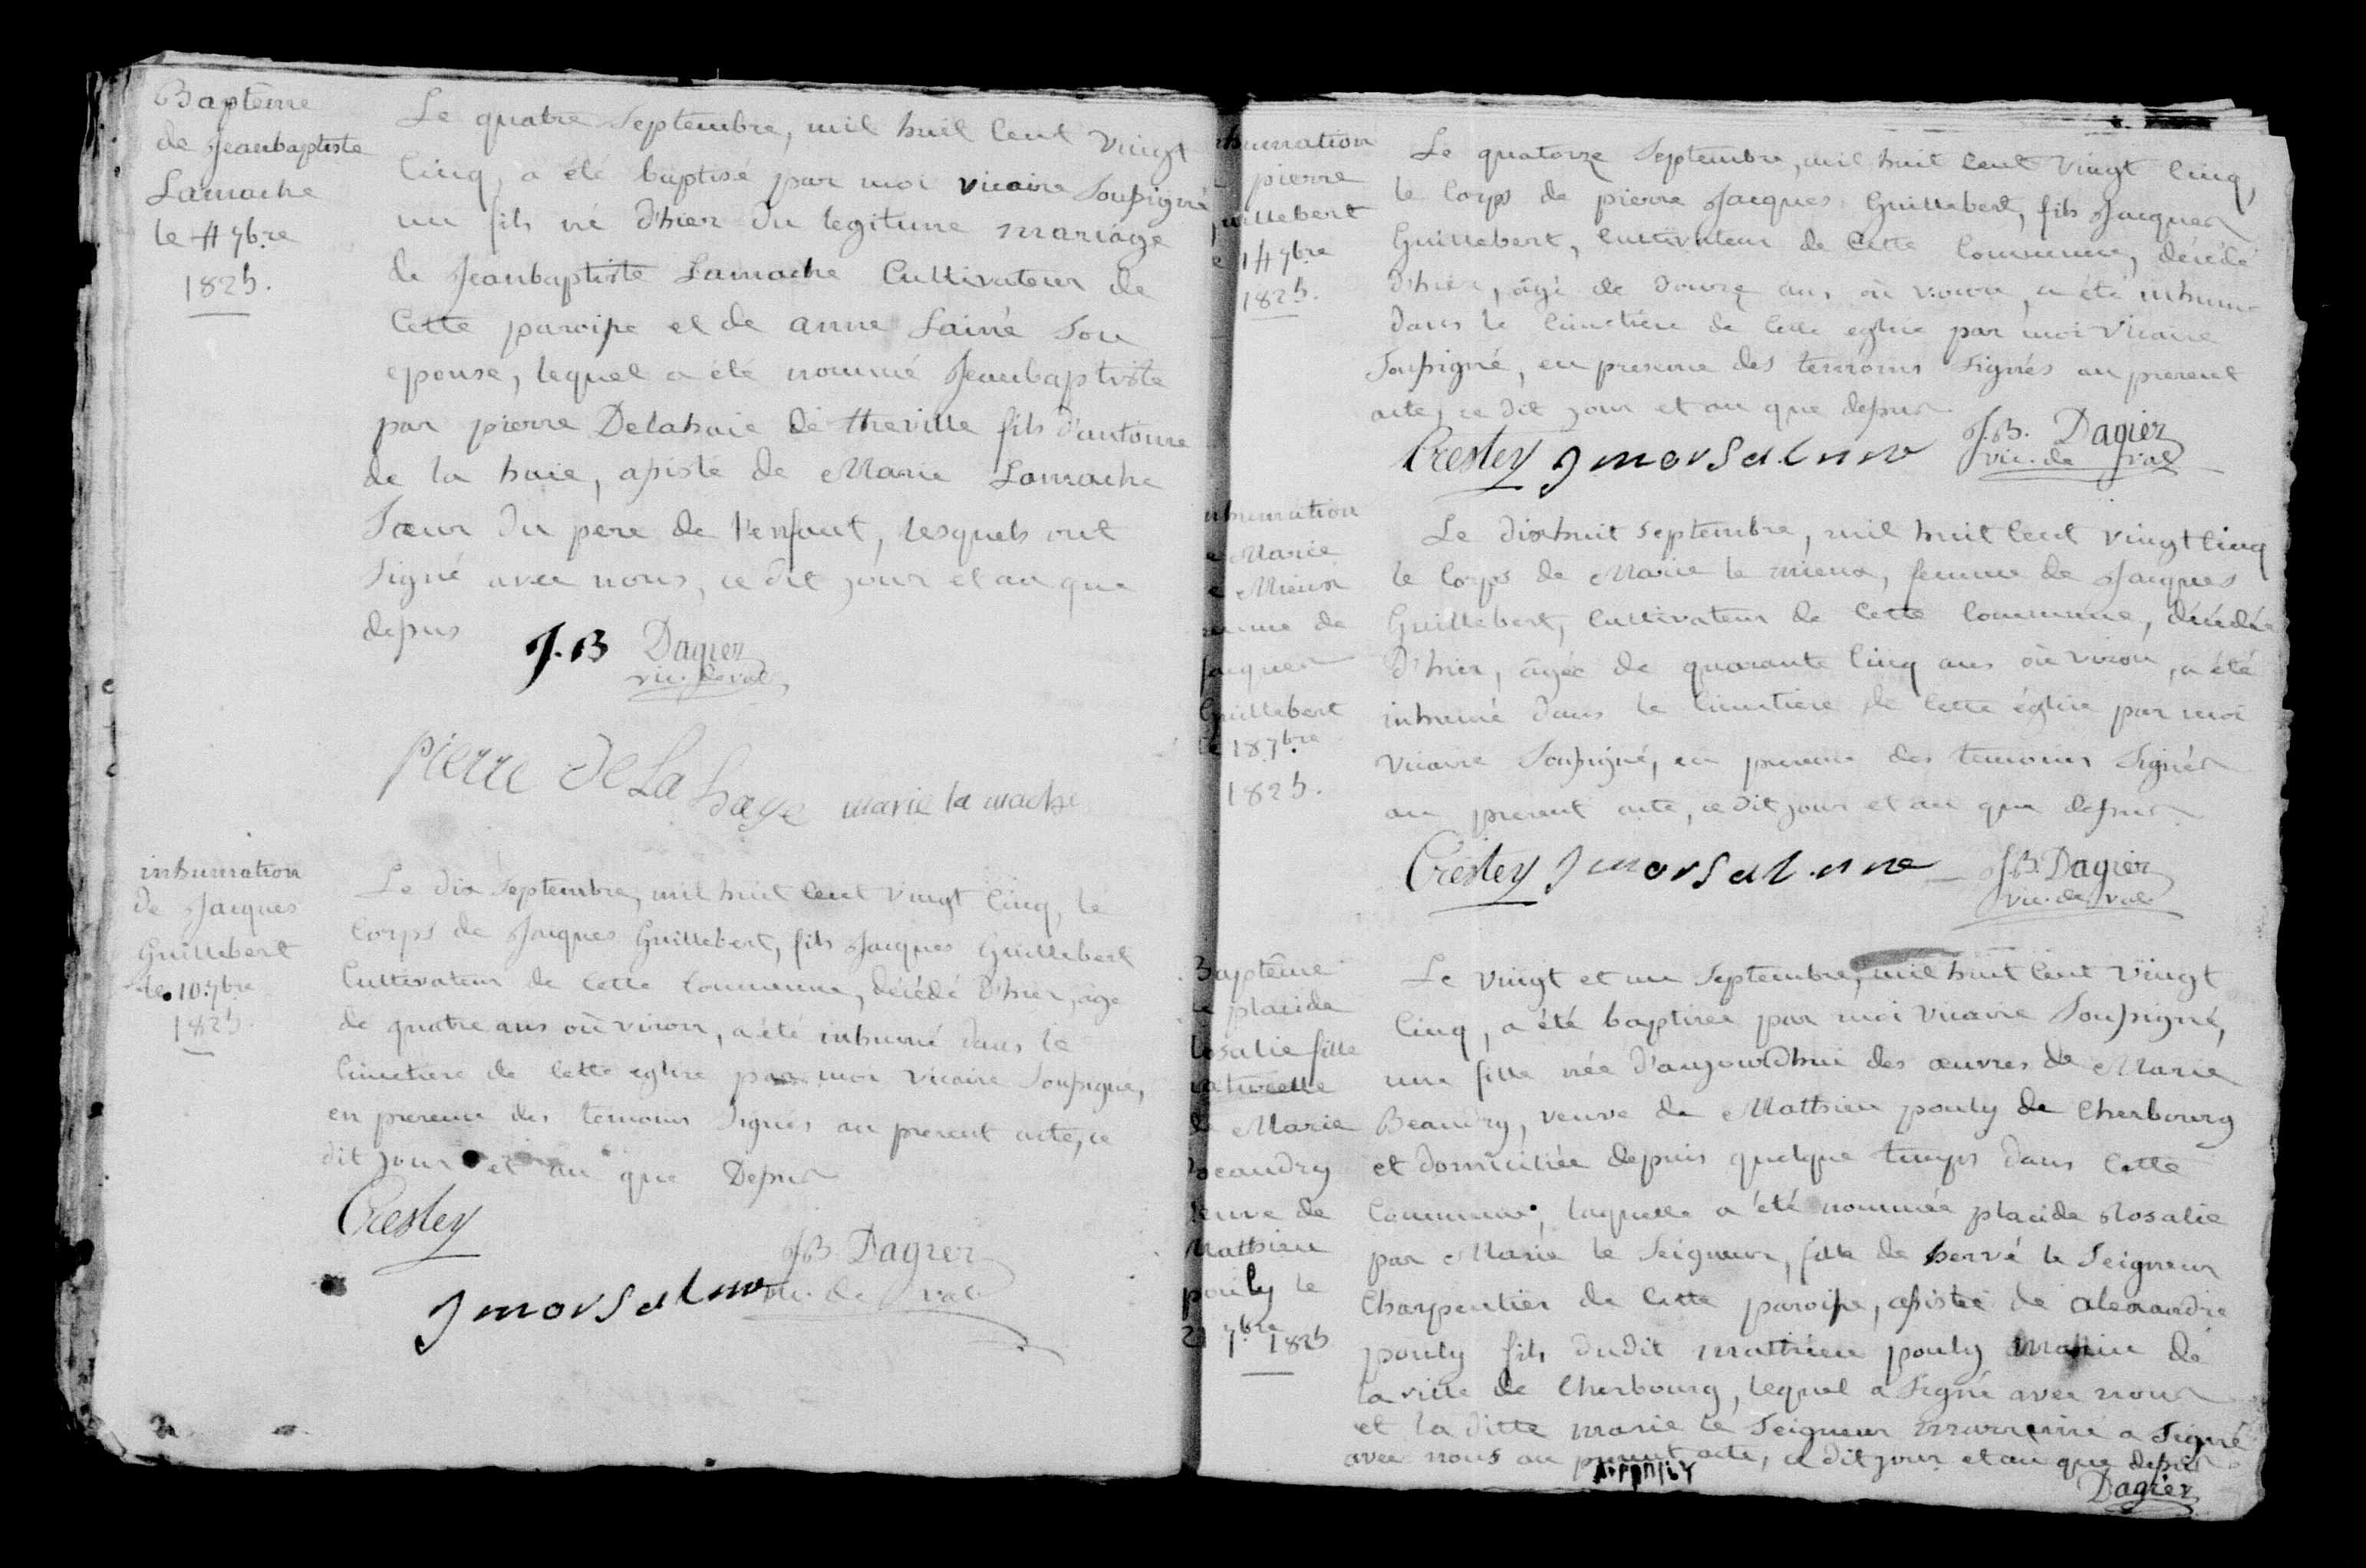 Baptême
de Jeanbaptiste
Lamache
le 4 7bre
1825.
Le quatre Septembre, mil huit Cent Vingt
Cinq, a été baptisé par moi vicaire Soussigné
un fils né d'hier du legitime mariage
de Jeanbaptiste Lamache Cultivateur de
Cette paroisse et de anne Lainé Son
epouse, lequel a été nommé Jeanbaptiste
par pierre Delahaie de theville fils d'antoine
de la haie, assisté de Marie Lamache
Sœur du pere de l'enfant, lesquels ont
Signé avec nous, ce dit jour et an que
dessus
J.B Dagier
vic. de val
pierre De La haye marie la mache
inhumation
de Jacques
Guillebert
le 10 7bre
1825.
Le dix Septembre, mil huit Cent Vingt Cinq, le
Corps de Jacques Guillebert, fils Jacques Guillebert
Cultivateur de Cette Commune, décédé d'hier, âgé
de quatre ans où viron, a été inhumé dans le
Cimetiere de Cette eglise par moi Vicaire Soussigné,
en presence des temoins Signés au present acte, ce
dit jour et an que Dessus
Cresley
J.B. Dagier
vic. de val
J morsalinne
inhumation
pierre
Guillebert
le 14 7bre
1825.
Le quatorze Septembre, mil huit Cent Vingt Cinq,
le Corps de pierre Jacques Guillebert, fils Jacques
Guillebert, Cultivateur de Cette Commune, décédé
d'hier, âgé de douze ans où viron, a été inhumé
dans le Cimetiere de Cette eglise par moi Vicaire
Soussigné, en presence des temoins Signés au present
acte, ce dit jour et an que dessus
Cresley J morsalinne J.B. Dagier
vic. de val
inhumation
de Marie
le Mieux
femme de
Jacques
Guillebert
le 18 7bre
1825.
Le dixhuit Septembre, mil huit Cent Vingt Cinq
le Corps de Marie le mieux, femme de Jacques
Guillebert, Cultivateur de Cette Commune, décédée
d'hier, âgée de quarante Cinq ans où viron, a été
inhumé dans le Cimetiere de Cette église par moi
Vicaire Soussigné, en presence des temoins Signés
au present acte, ce dit jour et an que dessus.
Cresley J morsalinne J.B. Dagier
vic. de val
Baptême
de placide
Rosalie fille
naturelle
de Marie
Beaudry
veuve de
Mathieu
pouly le
21 7bre 1825
Le Vingt et un Septembre, mil huit Cent Vingt
Cinq, a été baptisée par moi Vicaire Soussigné,
une fille née d'aujourdhui des œuvres de Marie
Beaudry, veuve de Mathieu pouly de Cherbourg
et domiciliée depuis quelque temps dans Cette
Commune, laquelle a été nommée placide Rosalie
par Marie le Seigneur, fille de hervé le Seigneur
Charpentier de Cette paroisse, assistée de alexandre
pouly fils dudit mathieu pouly de
la ville de Cherbourg, lequel a Signé avec nous
et la ditte marie le Seigneur marreine a Signé
avec nous au present acte, ce dit jour et an que dessus
Dagier